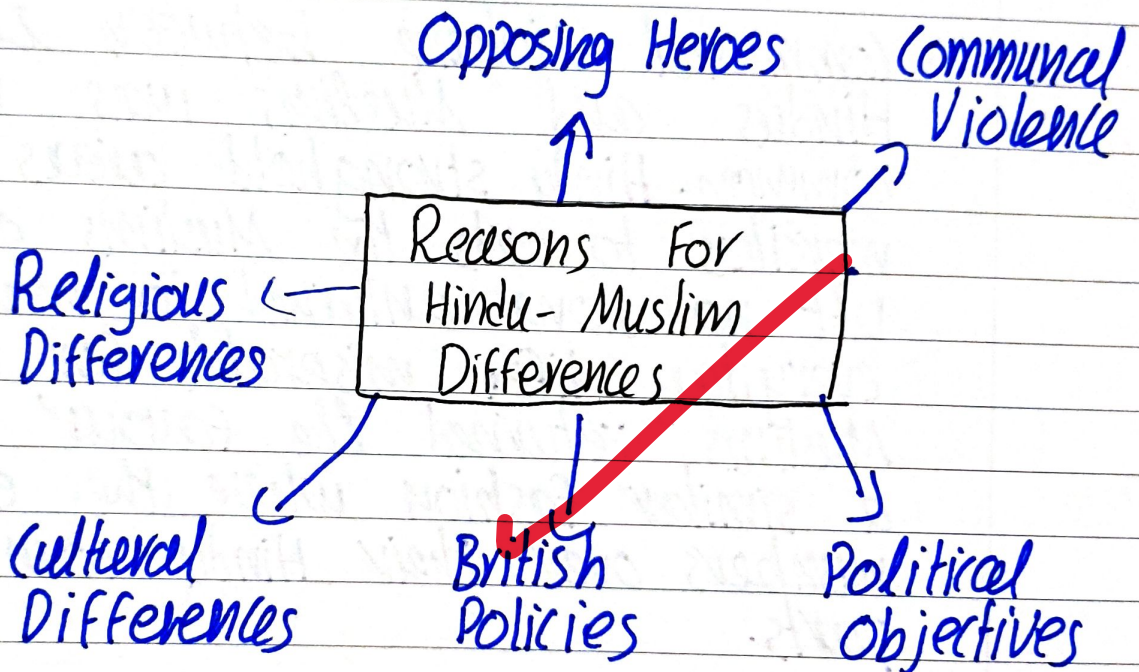 Opposing Heroes
Communal
Violence
Reasons For
Hindu- Muslim
Differences
Religious
Differences
Cultural
Differences
British
Policies
Political
Objectives